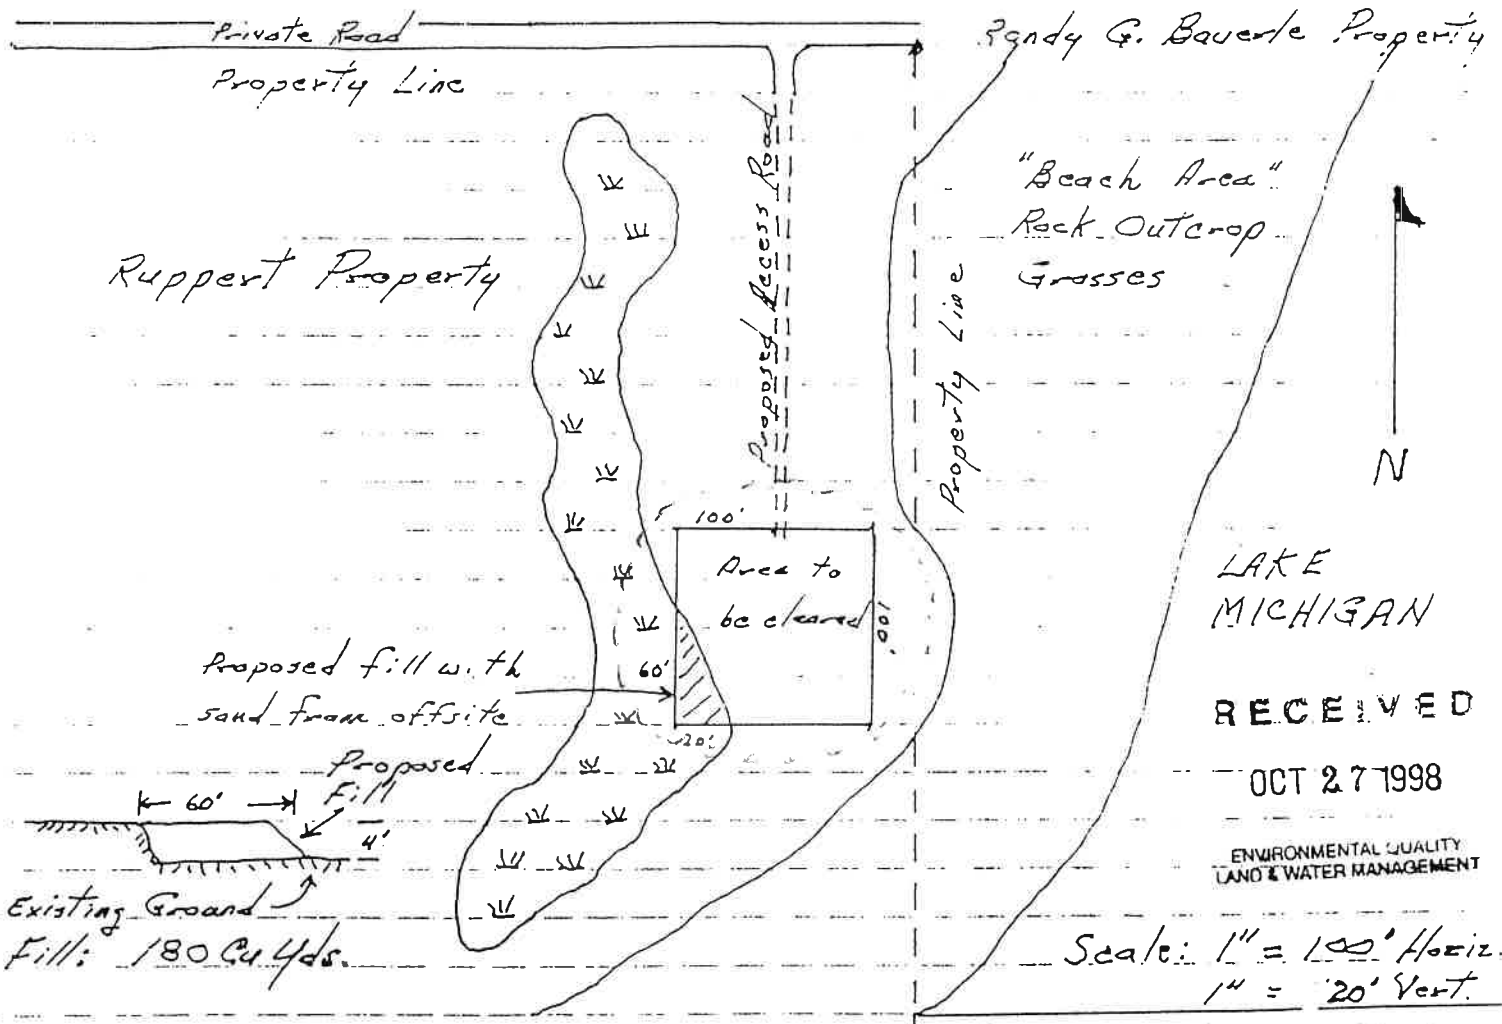 Private Road
Property Line
Randy G. Bauerle Property
"Beach Area"
Rock Outcrop
Grasses
Ruppert Property
Proposed Access Road
Property Line
N
100'
Area to
be cleared
100'
LAKE
MICHIGAN
Proposed fill with
sand from offsite
60'
20'
RECEIVED
OCT 27 1998
ENVIRONMENTAL QUALITY
LAND & WATER MANAGEMENT
Proposed
Fill
60'
4'
Existing Ground
Fill: 180 Cu Yds.
Scale: 1" = 100' Horiz.
1" = 20' Vert.